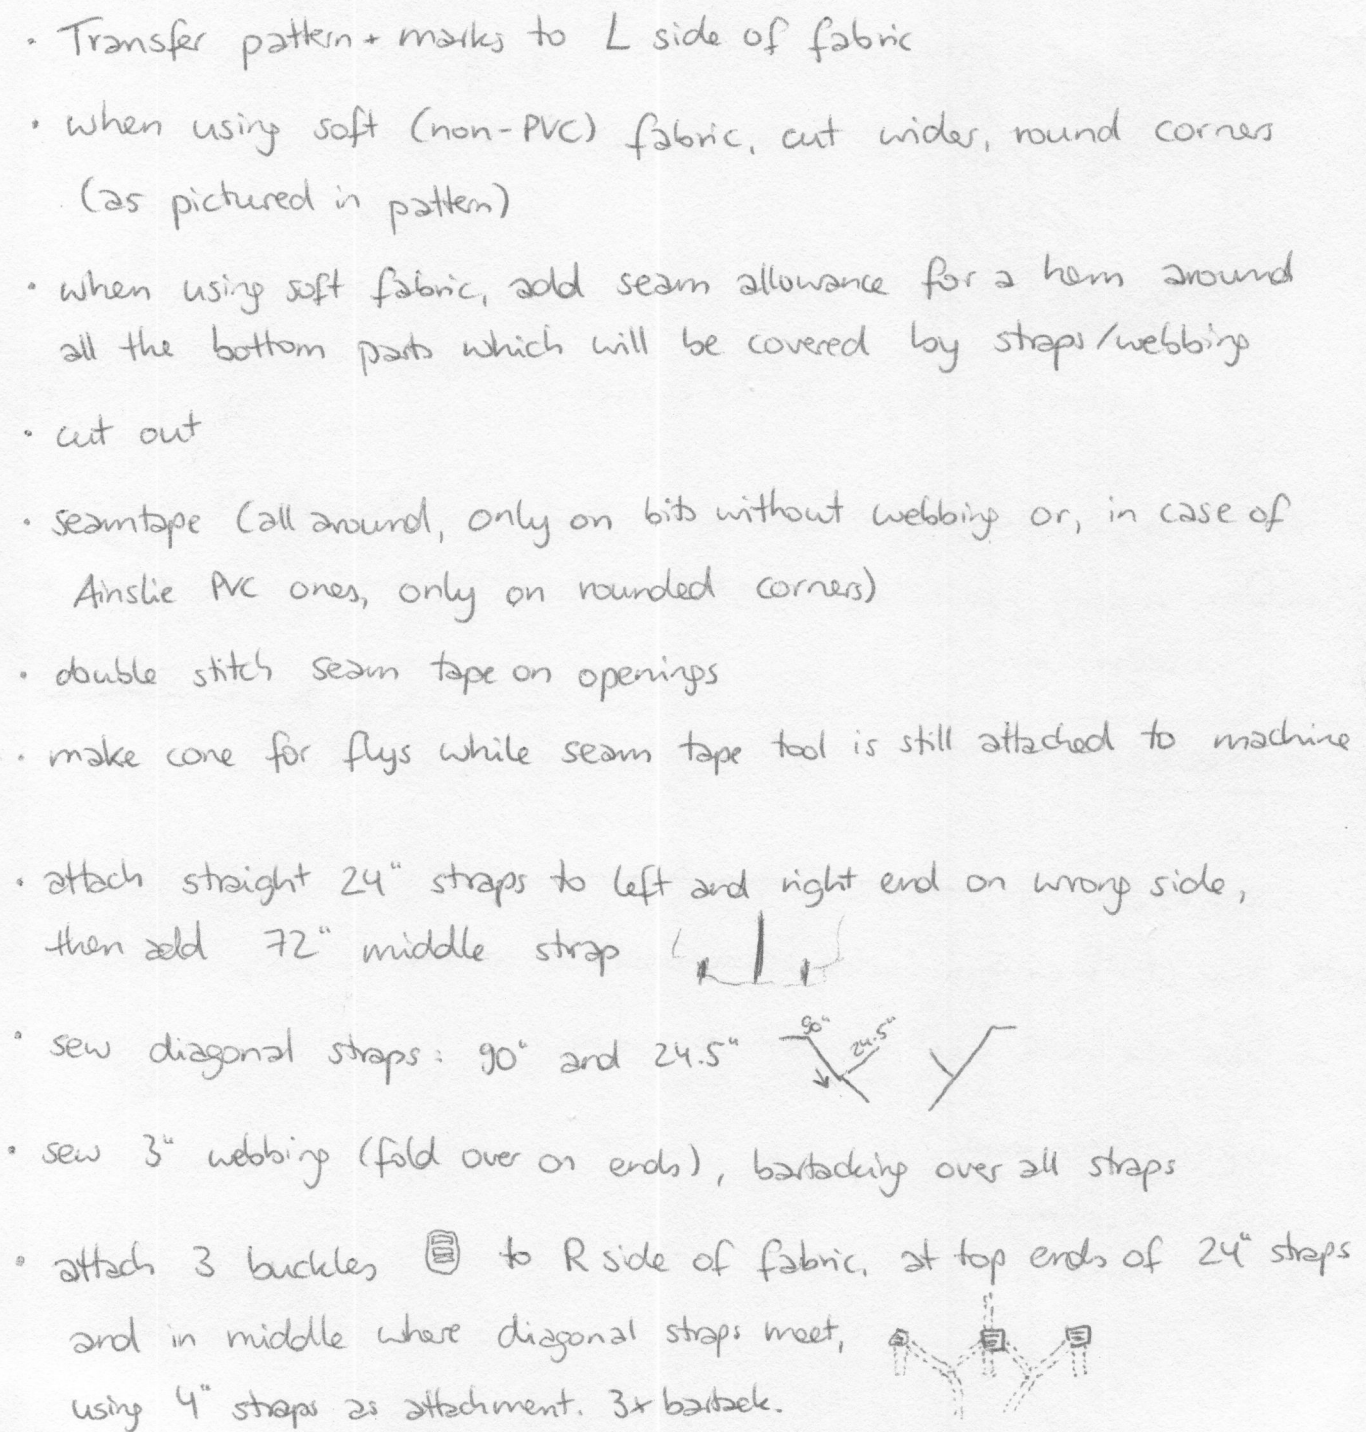 · Transfer pattern + marks to L side of fabric
· when using soft (non-PVC) fabric, cut wider, round corners
(as pictured in pattern)
· when using soft fabric, add seam allowance for a hem around
all the bottom parts which will be covered by straps/webbing
· cut out
· seamtape (all around, only on bits without webbing or, in case of
Ainslie PVC ones, only on rounded corners)
· double stitch seam tape on openings
· make cone for flys while seam tape tool is still attached to machine
· attach straight 24" straps to left and right end on wrong side,
then add 72" middle strap
· sew diagonal straps: 90" and 24.5" 90" 24.5"
· sew 3" webbing (fold over on ends), bartacking over all straps
· attach 3 buckles to R side of fabric, at top ends of 24" straps
and in middle where diagonal straps meet,
using 4" straps as attachment. 3x bartack.